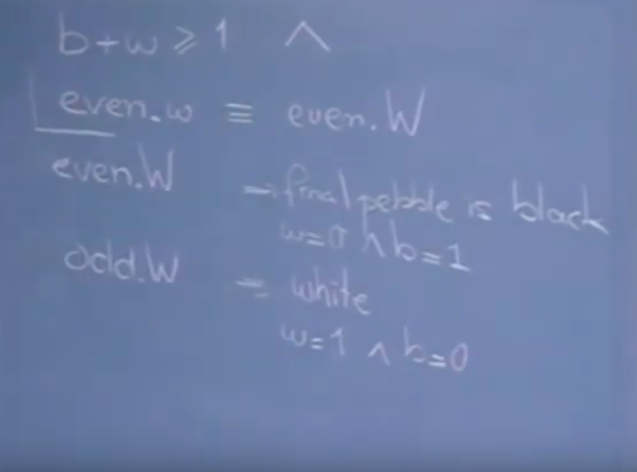 b+w ≥ 1 ∧
even.w ≡ even.W
even.W → final pebble is black
w=0 ∧ b=1
odd.W = white
w=1 ∧ b=0